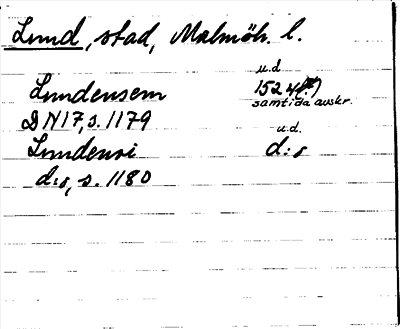 Lund, stad, Malmöh. l.
u.d
Lundensem 1524(?)
samtida avskr.
DN17, s. 1179
u.d.
Lundensi d:o
d:o, s. 1180